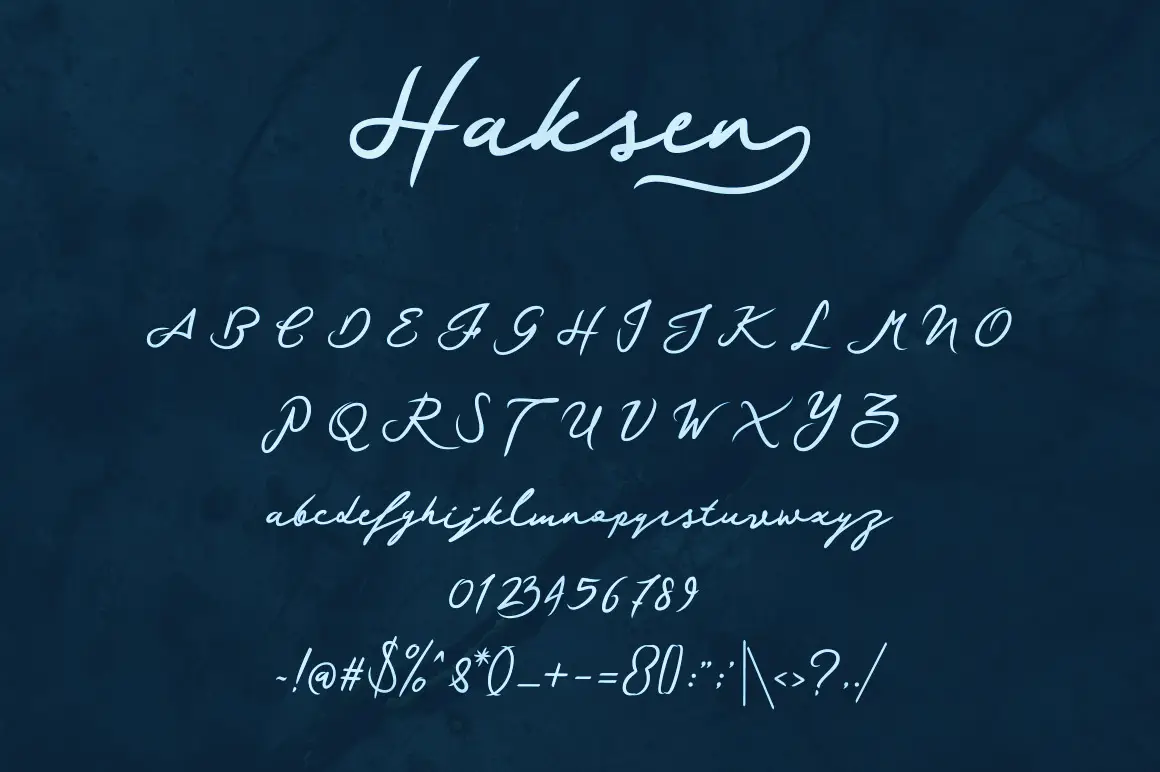 Haksen
A B C D E F G H I J K L M N O
P Q R S T U V W X Y Z
abcdefghijklmnopqrstuvwxyz
0123456789
~!@#$%^&*()_+-={}[]:";'|\<>?,./